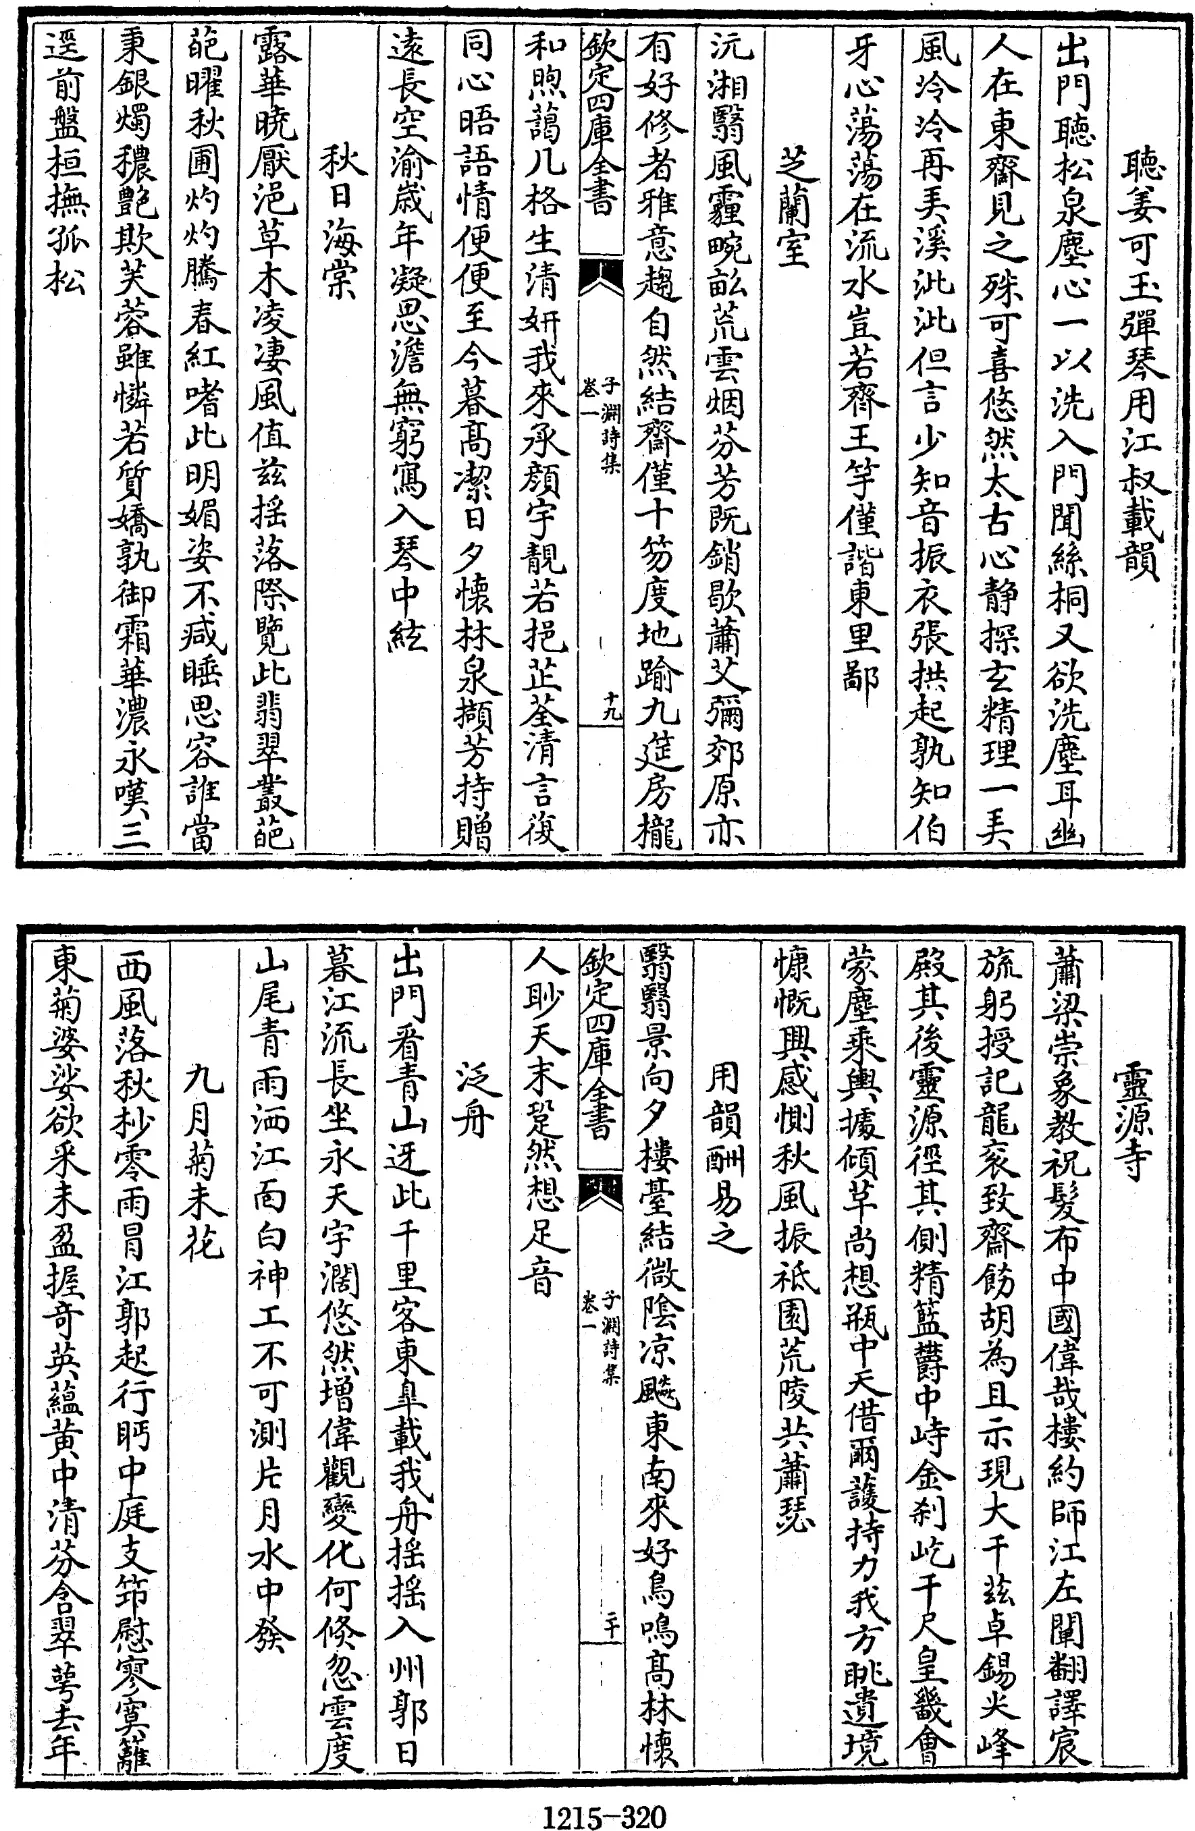 聽姜可玉彈琴用江叔載韻
出門聽松泉塵心一以洗入門聞絲桐又欲洗塵耳幽
人在東齋見之殊可喜悠然太古心靜探玄精理一美
風泠泠再美溪泚泚但言少知音振衣張拱起孰知伯
牙心蕩蕩在流水豈若齊王竽僅諧東里鄙
芝蘭室
沅湘翳風霾畹畝荒雲烟芬芳既銷歇蕭艾彌郊原亦
有好修者雅意趨自然結齋僅十笏度地踰九筵房櫳
欽定四庫全書
子淵詩集
卷一
十九
和煦藹几格生清妍我來承顔宇靚若挹芷荃清言復
同心晤語情便便至今暮高潔日夕懷林泉擷芳持贈
遠長空渝歲年凝思澹無窮寫入琴中絃
秋日海棠
露華曉厭浥草木凌淒風值茲揺落際覽此翡翠叢葩
葩曜秋圃灼灼騰春紅嗜此明媚姿不減睡思容誰當
秉銀燭穠艶欺芙蓉雖憐若質嬌孰御霜華濃永嘆三
逕前盤桓撫孤松
靈源寺
蕭梁崇象教祝髪布中國偉哉樓約師江左闡翻譯宸
旒躬授記龍衮致齋飭胡為且示現大千茲卓錫火峰
殿其後靈源徑其側精籃欝中峙金刹屹千尺皇畿會
蒙塵乘輿據傾草尚想瓶中天借爾護持力我方眺遺境
慷慨興感惻秋風振祗園荒陵共蕭瑟
用韻酬易之
翳翳景向夕樓臺結微隂凉飈東南來好鳥鳴高林懷
欽定四庫全書
子淵詩集
卷一
二十
人眇天末跫然想足音
泛舟
出門看青山迓此千里客東臯載我舟揺揺入州郭日
暮江流長坐永天宇濶悠然增偉觀變化何倏忽雲度
山尾青雨洒江面白神工不可測片月水中發
九月菊未花
西風落秋杪零雨冒江郭起行眄中庭支笻慰寥寞籬
東菊婆娑欲采未盈握奇英藴黄中清芬含翠萼去年
1215-320